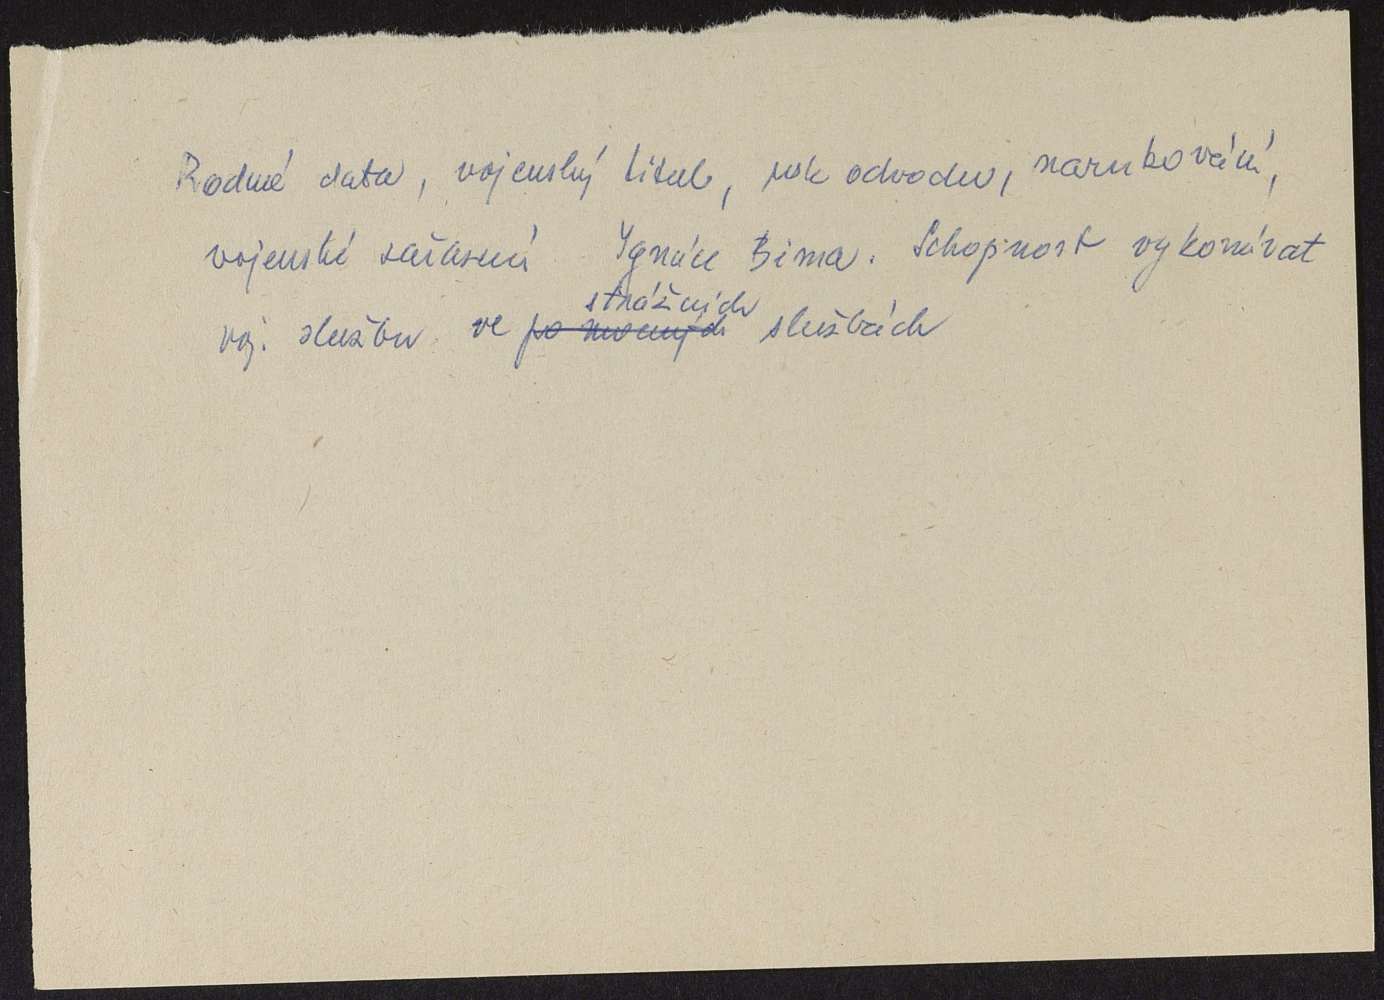 Rodné data, vojenský titul, rok odvodu, narukování,
vojenské zařazení Ygnáce Bíma. Schopnost vykonávat
strážních
voj. službu ve pomocných službách